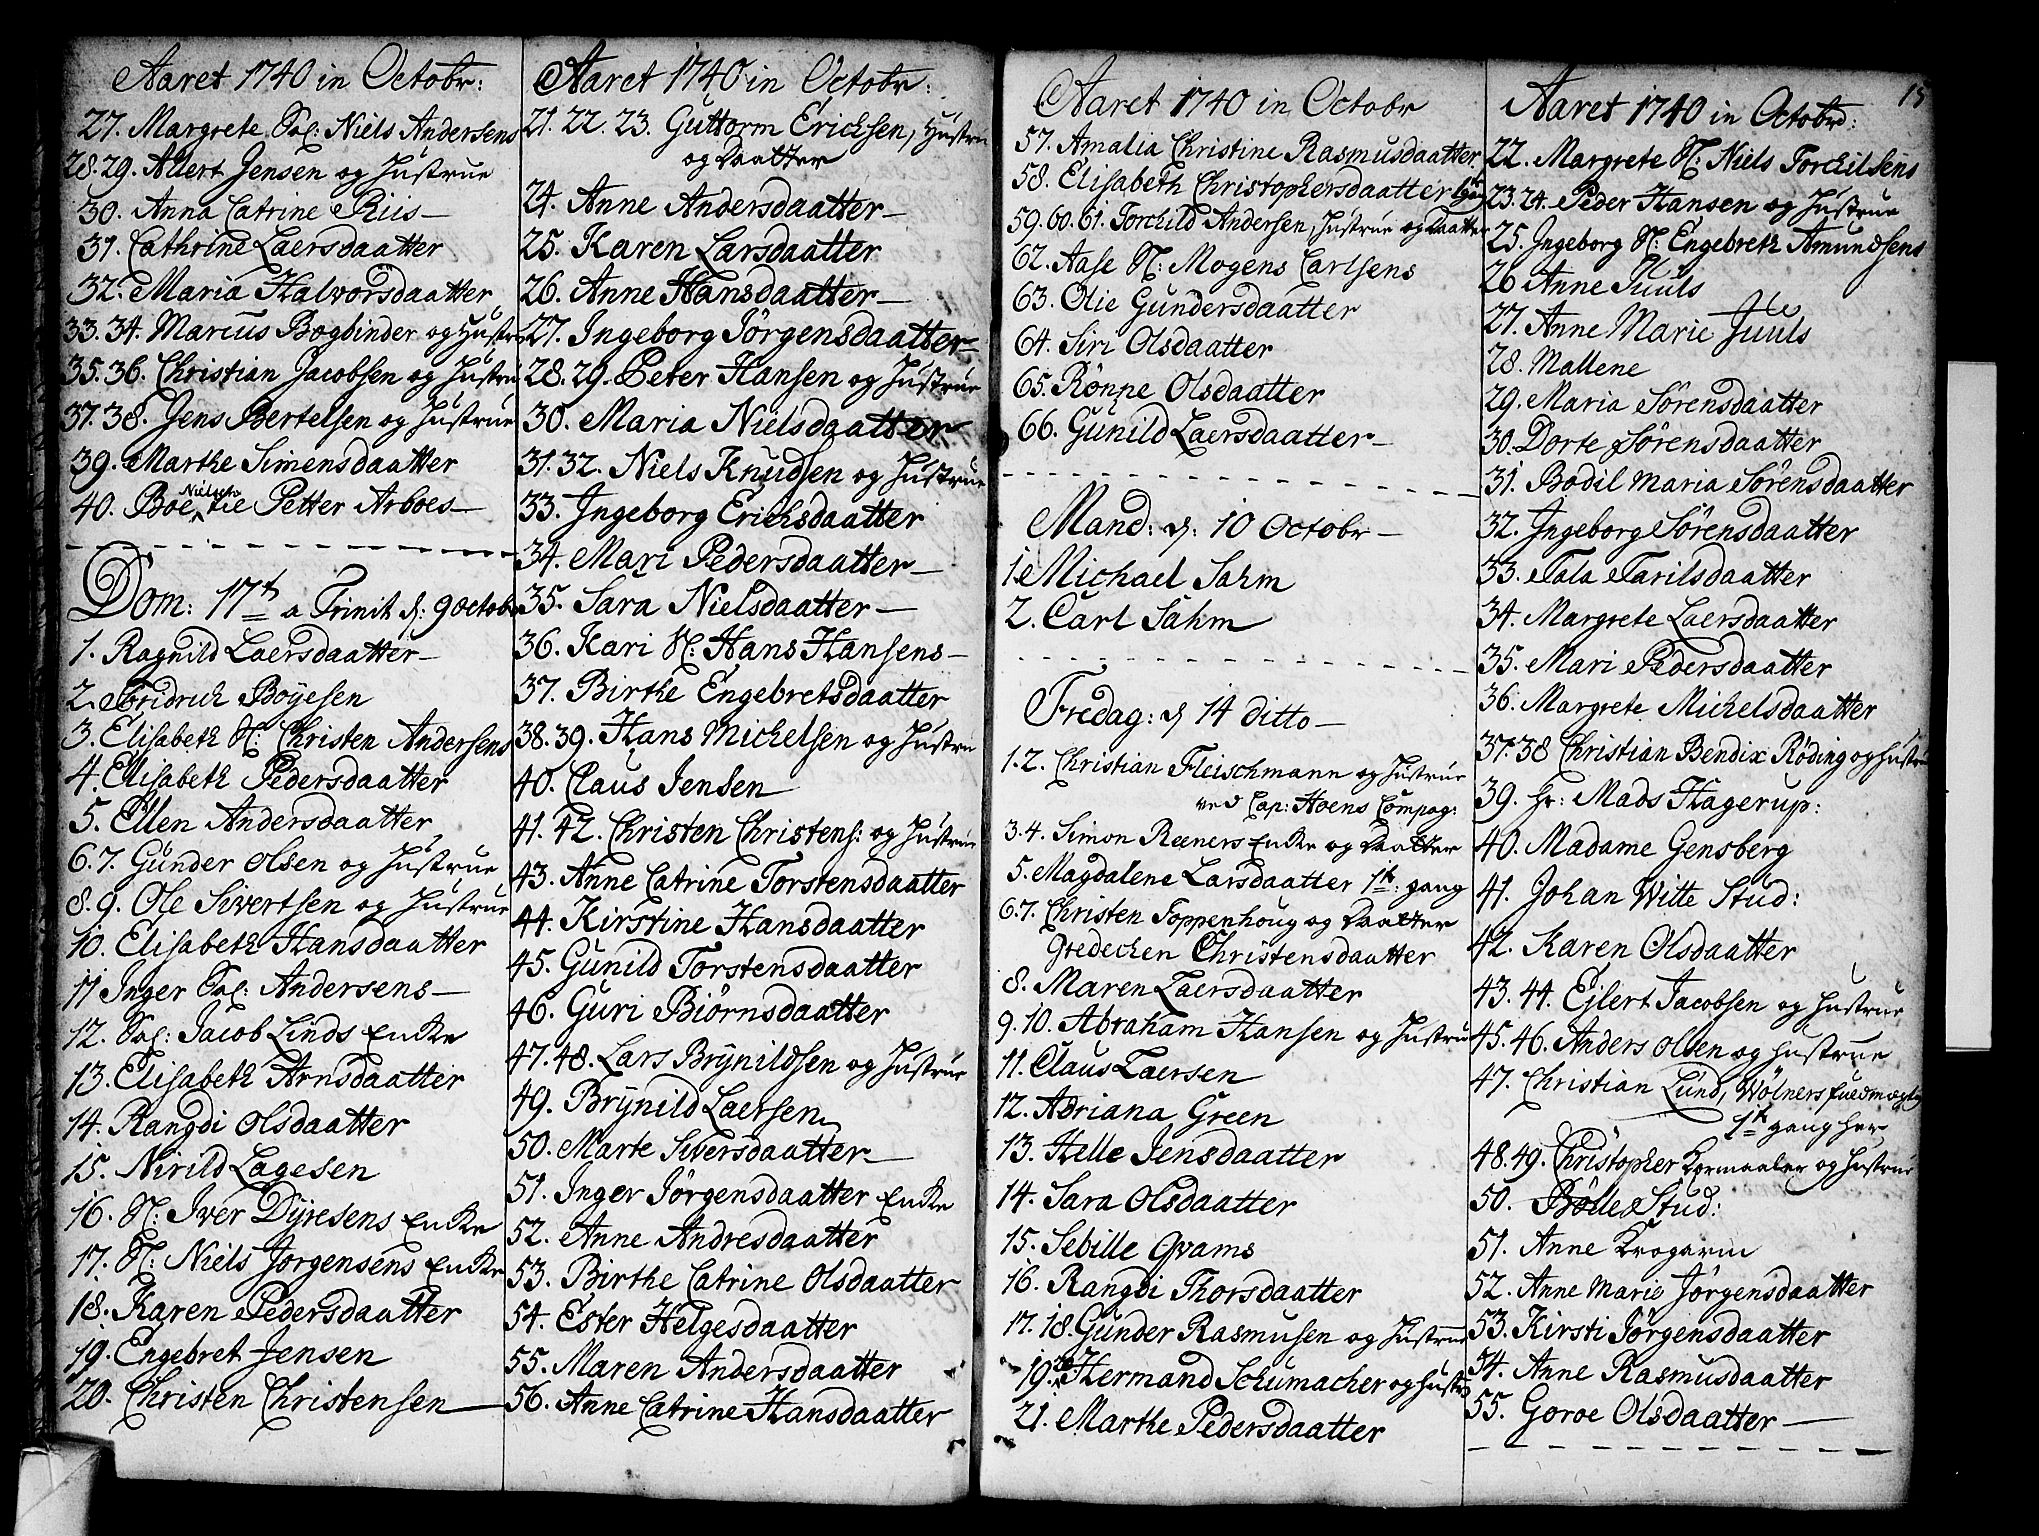 Aaret 1740 in Octobr:
27. Margrete Sal: Niels Andersens
28. 29. Allert Jensen og Hustrue
30. Anna Catrine Riis
31. Cathrine Laersdaatter
32. Maria Halvorsdaatter
33. 34. Marcus Bogbinder og Hustru
35. 36. Christian Jacobsen og Hustru
37. 38. Jens Bertelsen og Hustrue
39. Marthe Simensdaatter
40. Boe Nielsen Petter Arboes
Dom: 17de a Trinit d: 9 Octobr
1. Ragnild Laersdaatter
2. Fridrich Boÿesen
3. Elisabeth N: Christen Andersens
4. Elisabeth Pedersdaatter
5. Ellen Andersdaatter
6. 7. Gunder Olsen og Hustrue
8. 9. Ole Sivertsen og Hustrue
10. Elisabeth Hansdaatter
11 Inger Sal: Andersens
12. Sal: Jacob Linds Encke
13. Elisabeth Arnsdaatter
14. Rangdi Olsdaatter
15. Nirild Lagesen
16. N: Iver Dÿresens Encke
17. N: Niels Jørgensens Encke
18. Karen Pedersdaatter
19. Engebret Jensen
20. Christen Christensen
Aaret 1740 in Octobr:
21. 22. 23. Guttorm Erichsen, Hustru
og Daatter
24. Anne Andersdaatter
25. Karen Larsdaatter
26. Anne Hansdaatter
27. Ingeborg Jörgensdaatter
28. 29. Peter Hansen og Hustrue
30. Maria Nielsdaatter
31. 32. Niels Knudsen og Hustrue
33. Ingeborg Erichsdaatter
34. Mari Pedersdaatter
35. Sara Nielsdaatter
36. Kari N: Hans Hansens
37. Birthe Engebretsdaatter
38. 39. Hans Michelsen og Hustru
40. Claus Jensen
41. 42. Christen Christens: og Hustrue
43. Anne Catrine Torstensdaatter
44. Kirstine Hansdaatter
45. Gunild Torstensdaatter
46. Guri Biörnsdaatter
47. 48. Lars Brÿnildsen og Hustrue
49. Brÿnild Laersen
50. Marte Siversdaatter
51. Inger Jörgensdaatter Encke
52. Anne Andresdaatter
53. Birthe Catrine Olsdaatter
54. Ester Helgesdaatter
55. Maren Andersdaatter
56. Anne Catrine Hansdaatter
Aaret 1740 in Octobr
57. Amalia Christine Rasmusdaatter
58. Elisabeth Christophersdaatter
59. 60. 61. Torchild Andersen, Hustrue og Daatter
62. Aase N: Mogens Carlsens
63. Olie Gundersdaatter
64. Siri Olsdaatter
65. Rönne Olsdaatter
66. Gunild Laersdaatter
Mand: d: 10 Octobr
1. Michael Sahm
2. Carl Sahm
Fredag: d 14 ditto
1. 2. Christian Fleischmann og Hustrue
ved Cap: Hoens Compag:
3. 4. Simon Reeners Encke og Daatter
5. Magdalene Larsdaatter 1te: gang
6. 7. Christen Toppenhoug og Daatter
Gredechen Christensdaatter
8. Maren Laersdaatter
9. 10. Abraham Hansen og Hustru
11. Claus Laersen
12. Adriana Green
13. Helle Jensdaatter
14. Sara Olsdaatter
15. Sebille Qvams
16. Rangdi Thorsdaatter
17. 18. Gunder Rasmusen og Hustrue
19. 20 Hermand Schumacher og Hustr
21. Marthe Pedersdaatter
15
Aaret 1740 in Octobr:
22. Margrete N: Niels Torchilsens
23. 24. Peder Hansen og Hustrue
25. Ingeborg N: Engebreth Amundsens
26 Anne Juuls
27. Anne Marie Juuls
28. Mallene
29. Maria Sörensdaatter
30. Dorte Sörensdaatter
31. Bodil Maria Sörensdaatter
32. Ingeborg Sörensdaatter
33. Tala Tarilsdaatter
34. Margrete Laersdaatter
35. Mari Pedersdaatter
36. Margrete Michelsdaatter
37. 38 Christian Bendix Röding og Hustru
39. Hr: Mads Hagerup:
40. Madame Gensberg
41. Johan Witte Stud:
42. Karen Olsdaatter
43. 44. Ejlert Jacobsen og Hustrue
45. 46. Anders Olsen og Hustrue
47. Christian Lund, Wölners fuldmægtig
1te gang her
48. 49. Christopher Kormaaler og Hustrue
50. Bölle Stud:
51. Anne Krogarm
52. Anne Marie Jørgensdaatter
53. Kirsti Jörgensdaatter
54. Anne Rasmusdaatter
55. Goroe Olsdaatter